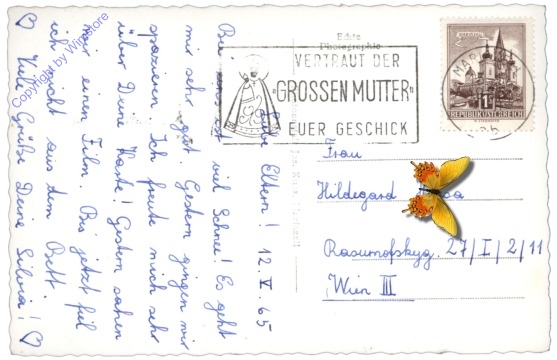 Liebe Eltern! 12. V. 65
Bei uns ist viel Schnee! Es geht
mir sehr gut. Gestern gingen wir
spazieren. Ich freute mich sehr
über Deine Karte! Gestern sahen
wir einen Film. Bis jetzt fiel
ich nicht aus dem Bett.
♡ Viele Grüße Deine Silvia! ♡
Copyright by Winstore
Echte
Photographie
VERTRAUT DER
"GROSSEN MUTTER"
EUER GESCHICK
REPUBLIK ÖSTERREICH
Frau
Hildegard
Rasumofskyg. 27/I/2/11
Wien III